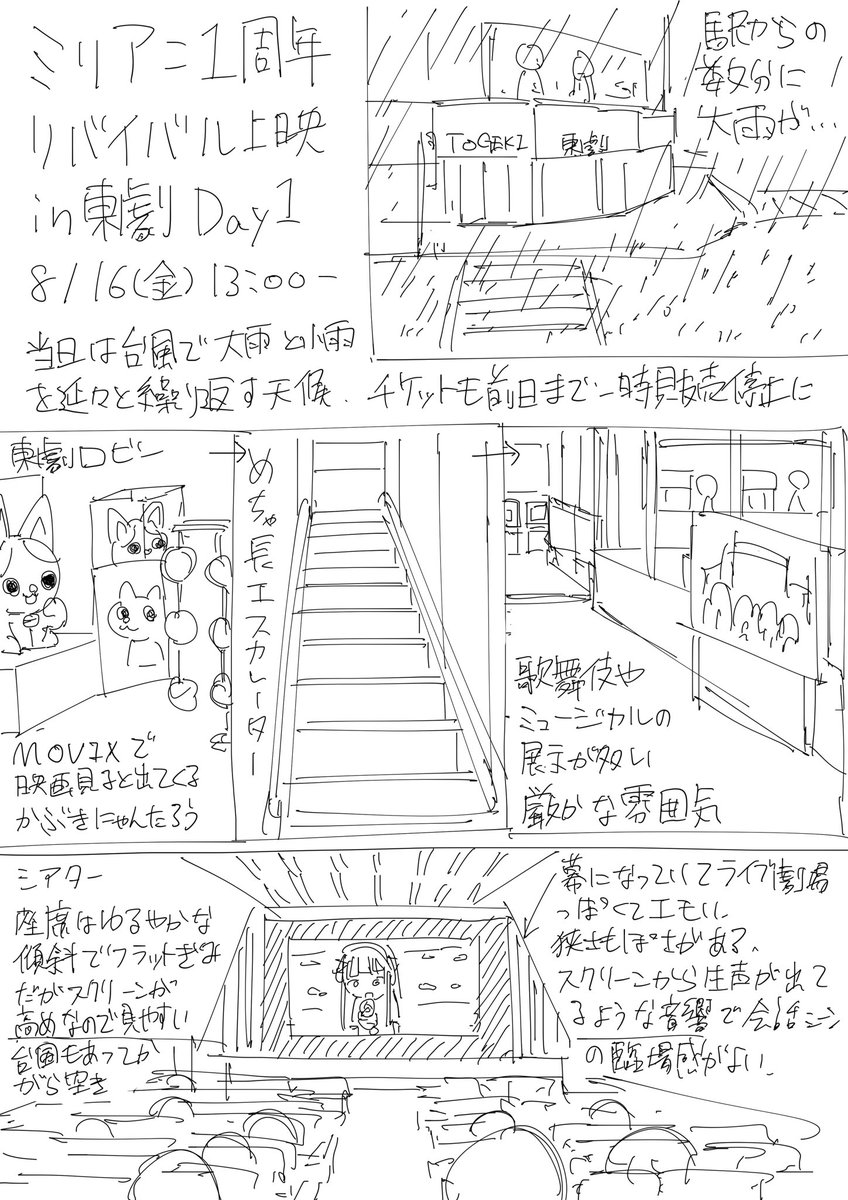 ミリアニ1周年
リバイバル上映
in 東劇 Day1
8/16(金) 13:00ー
当日は台風で大雨と小雨
を延々と繰り返す天候. チケットも前日まで一時販売停止に
駅からの
数分に
大雨が…
TOGEKI 東劇
東劇ロビー
MOVIXで
映画見ると出てくる
かぶきにゃんたろう
→
めちゃ長エスカレーター
→
歌舞伎や
ミュージカルの
展示が多い
厳かな雰囲気
シアター
座席はゆるやかな
傾斜でフラットぎみ
だがスクリーンが
高めなので見やすい
台風もあってか
がら空き
幕になっていてライブ劇場
っぽくてエモい.
狭さもほどがある.
スクリーンから生声が出て
るような音響で会話シーン
の臨場感がよい.